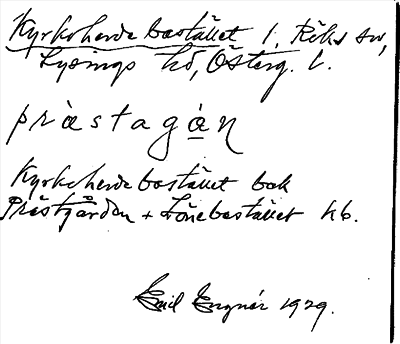 Kyrkoherdebostället i Röks sn,
Lysings hd, Österg. l.
pràstagα̣ṇ
Kyrkoherdebostället bok
Prästgården + Lönebostället kb.
Emil 1929.